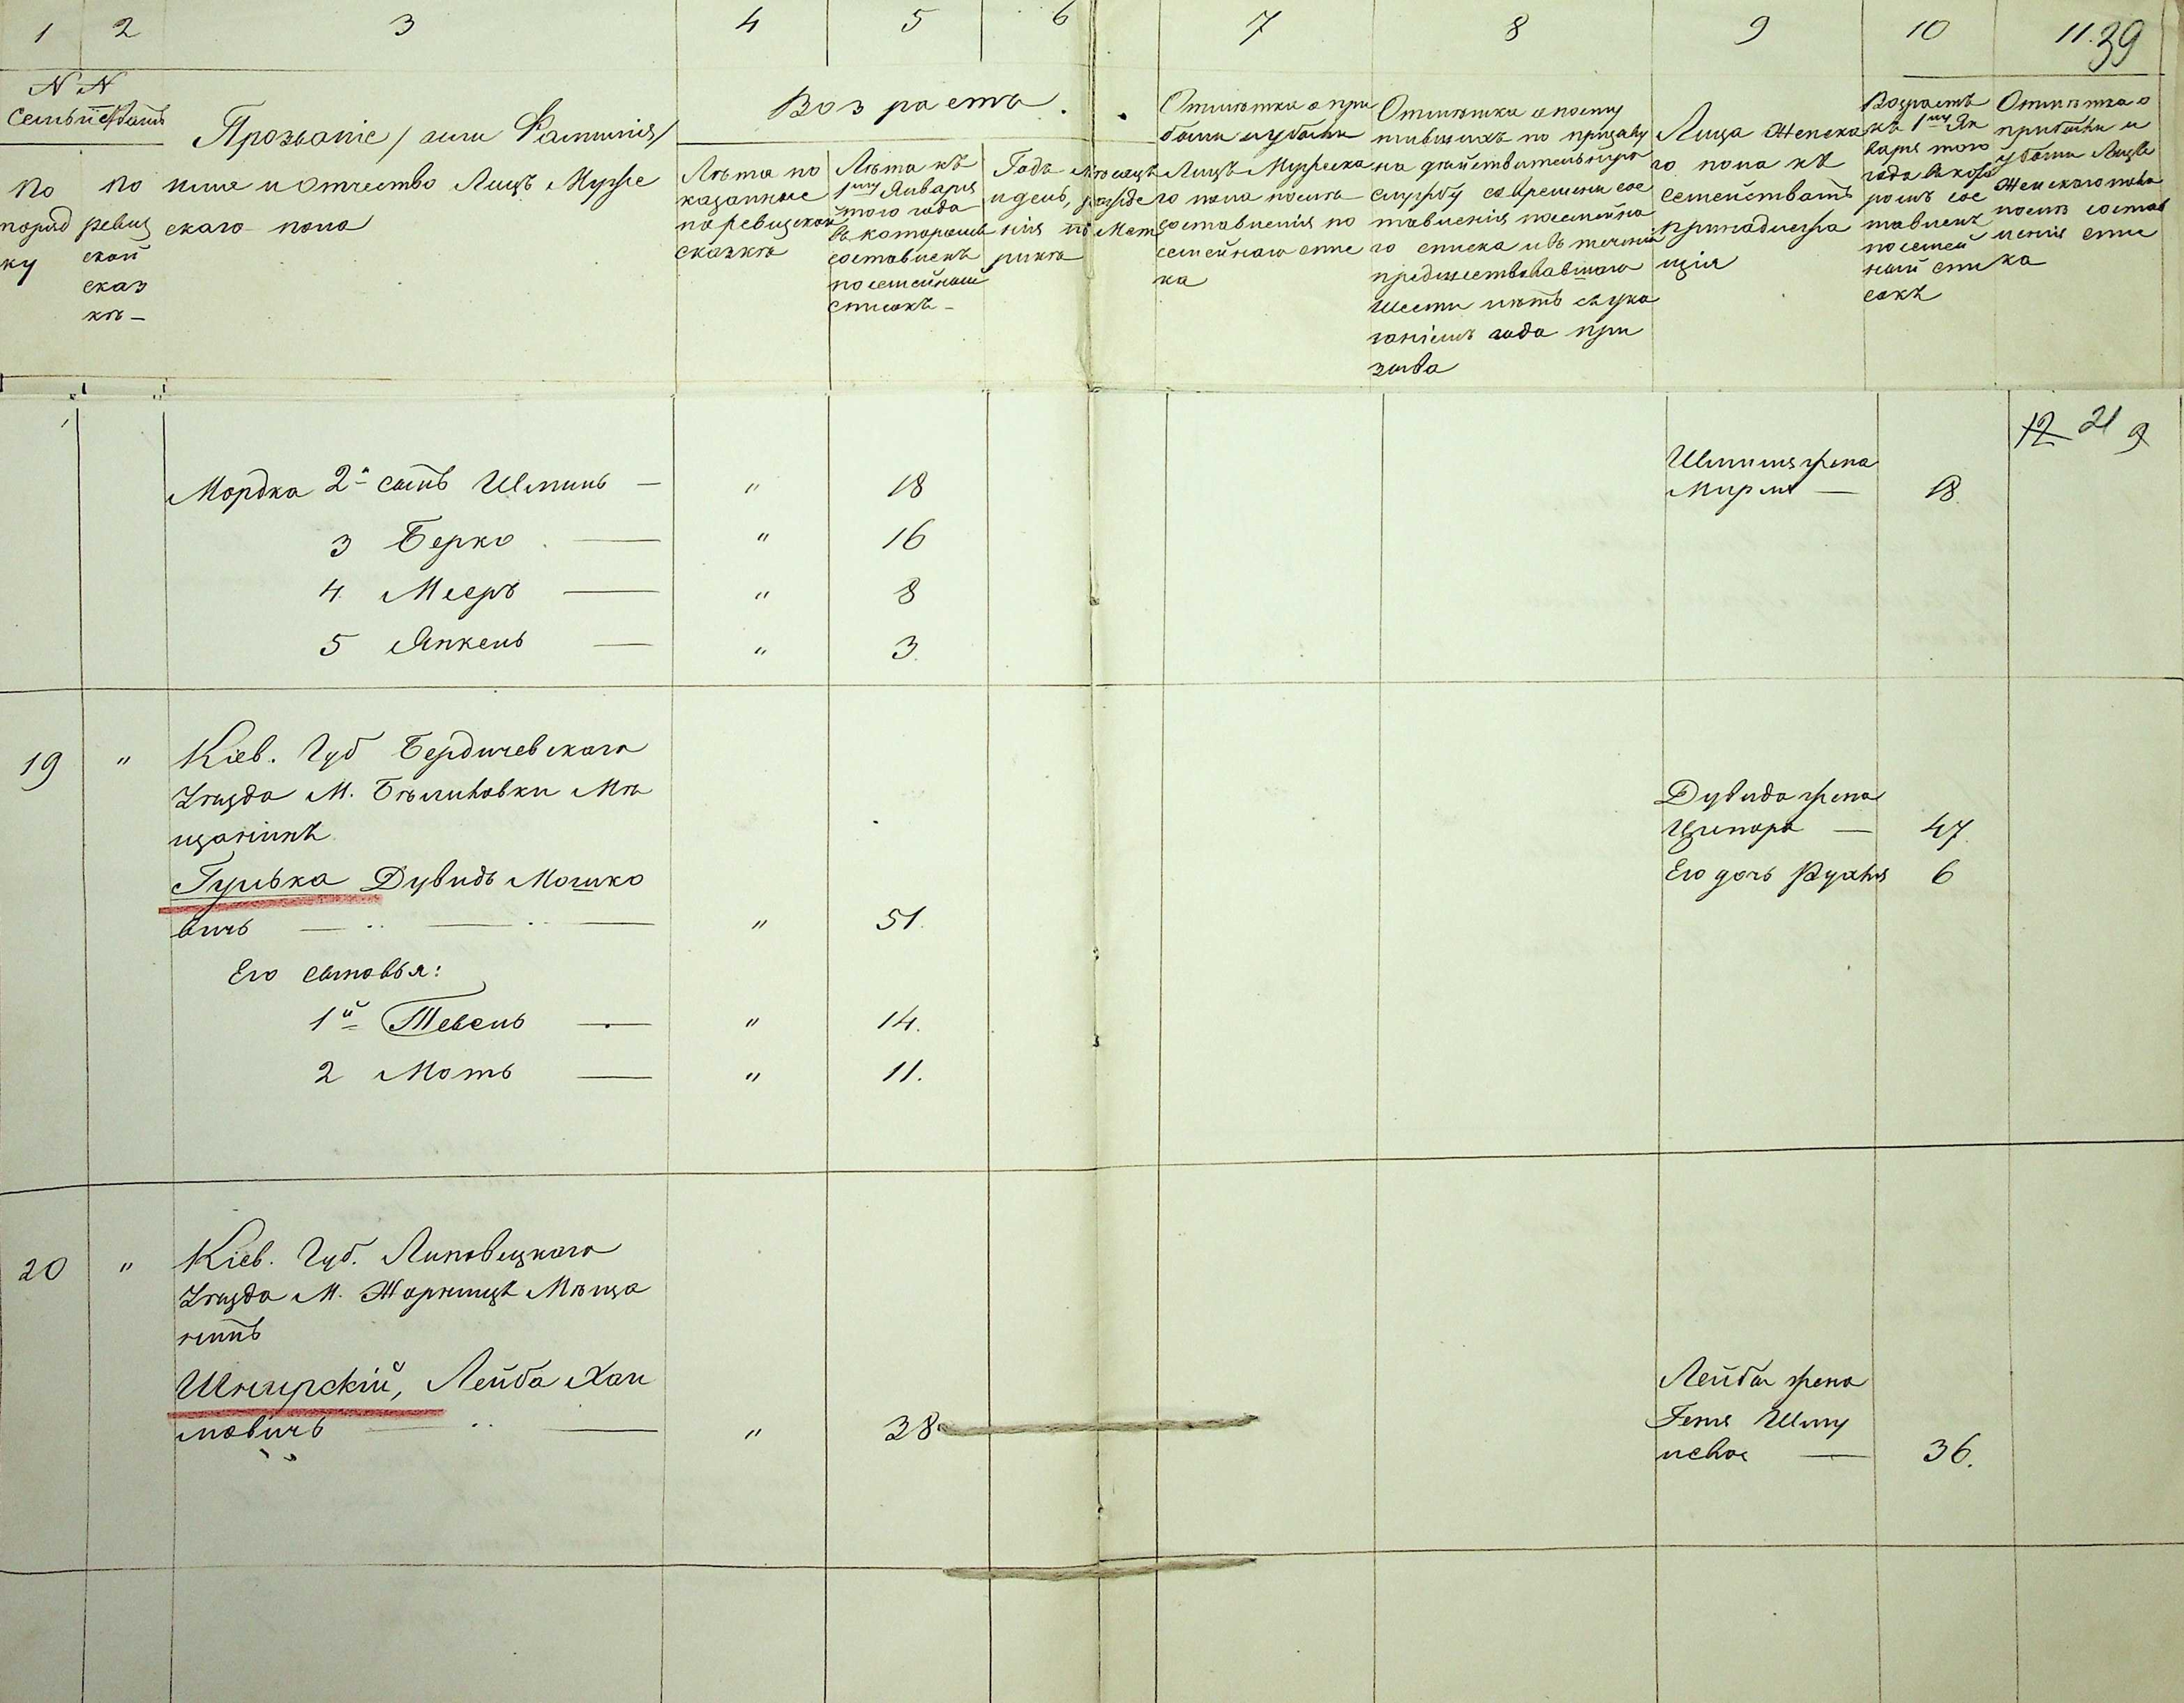 1 2 3 4 5 6 7 8 9 10 11. 39
N N
Семьи
Прозваніе / или Фамилія /
имя и отчество Лицъ Муже
скаго пола
По
поряд
ку
по
ревиз
ской
сказ
кѣ –
Возраста.
Лѣта по
казанные
по ревизской
сказкѣ
Лѣта къ
1му Января
того года
въ которомъ
составленъ
посемейный
списокъ –
Годъ Мѣсяцъ
и день, рожде
нія по Мет
рикѣ
Отмѣтка о при
были и убыли
Лицъ Мужска
го пола послѣ
составленія по
семейнаго спис
ка
Отмѣтка о посту
пившихъ по призыву
на дѣйствительную
службу со времени сос
тавленія посемейна
го списка и въ теченіи
предшествовавшаго
шести лѣтъ съ ука
заніемъ года при
зыва
Лица Женска
го пола къ
семействамъ
принадлежа
щія
Возрастъ
къ 1му Ян
варя того
года въ кото
ромъ сос
тавленъ
посемей
ный спи
сокъ
Отмѣтка о
прибыли и
убыли Лицъ
Женскаго пола
послѣ состав
ленія спис
ка
12 21 9
Шмиля жена
Мордка 2й сынъ Шмиль – " 18 Мирля – 18.
3 Берко — " 16
4 Мееръ — " 8
5 Янкель — " 3.
19 " Кіев. Губ Бердичевскаго
Уѣзда М. Бѣлиловки Мѣ
щанинъ
Гулька Дувидъ Мошко
вичъ — " 51.
Дувида жена
Ципора — 47.
Его дочь Рухля 6
Его сыновья:
1й Тевель — " 14.
2 Моть — " 11.
20 " Кіев. Губ. Липовецкаго
Уѣзда М. Жорнищъ Мѣща
нинъ
Шнирскій, Лейба Хаи
мовичъ — " 38
Лейбы жена
Геня Шму
левна — 36.